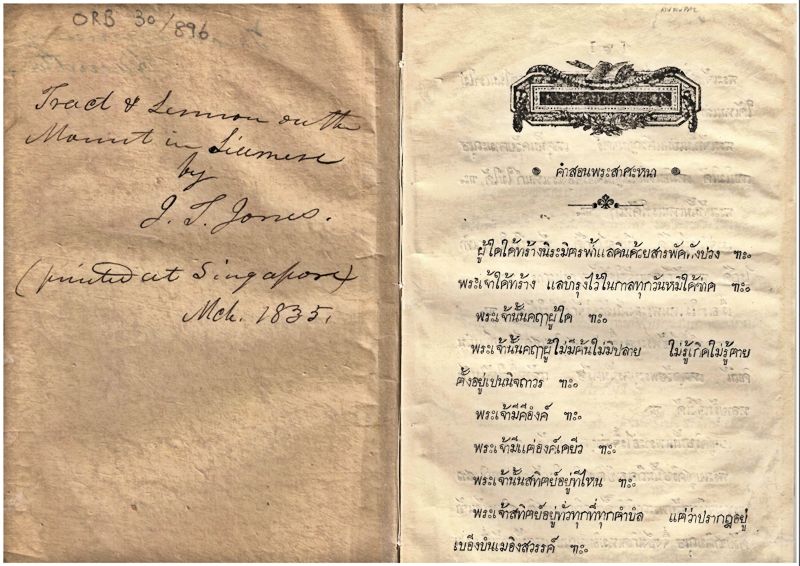 ORB 30/896
Tract & Sermon on the
Mount in Siamese
by
J. T. Jones.
(printed at Singapore)
Mch. 1835.
คำสอนพระสาศะหนา
ผู้ใดใด้ทร้างนิระมิตรฟ้าแลดินด้วยสารพัดทังปวง ฯะ
พระเจ้าใด้ทร้าง แลบำรุงไว้ในกาลทุกวันหมิใด้ขาด ฯะ
พระเจ้านั้นคฤาผู้ใด ฯะ
พระเจ้านั้นคฤาผู้ไม่มีต้นไม่มีปลาย ไม่รู้เกิดไม่รู้ตาย
ตั้งอยู่เปนนิจถาวร ฯะ
พระเจ้ามีกี่อ์งค์ ฯะ
พระเจ้ามีแต่องค์เดยีว ฯะ
พระเจ้านั้นสทิศย์อยู่ที่ไหน ฯะ
พระเจ้าสทิศย์อยู่ทั่วทุกที่ทุกตำบล แต่ว่าปรากฎอยู่
เบอี้งบนเมอีงสวรรค์ ฯะ